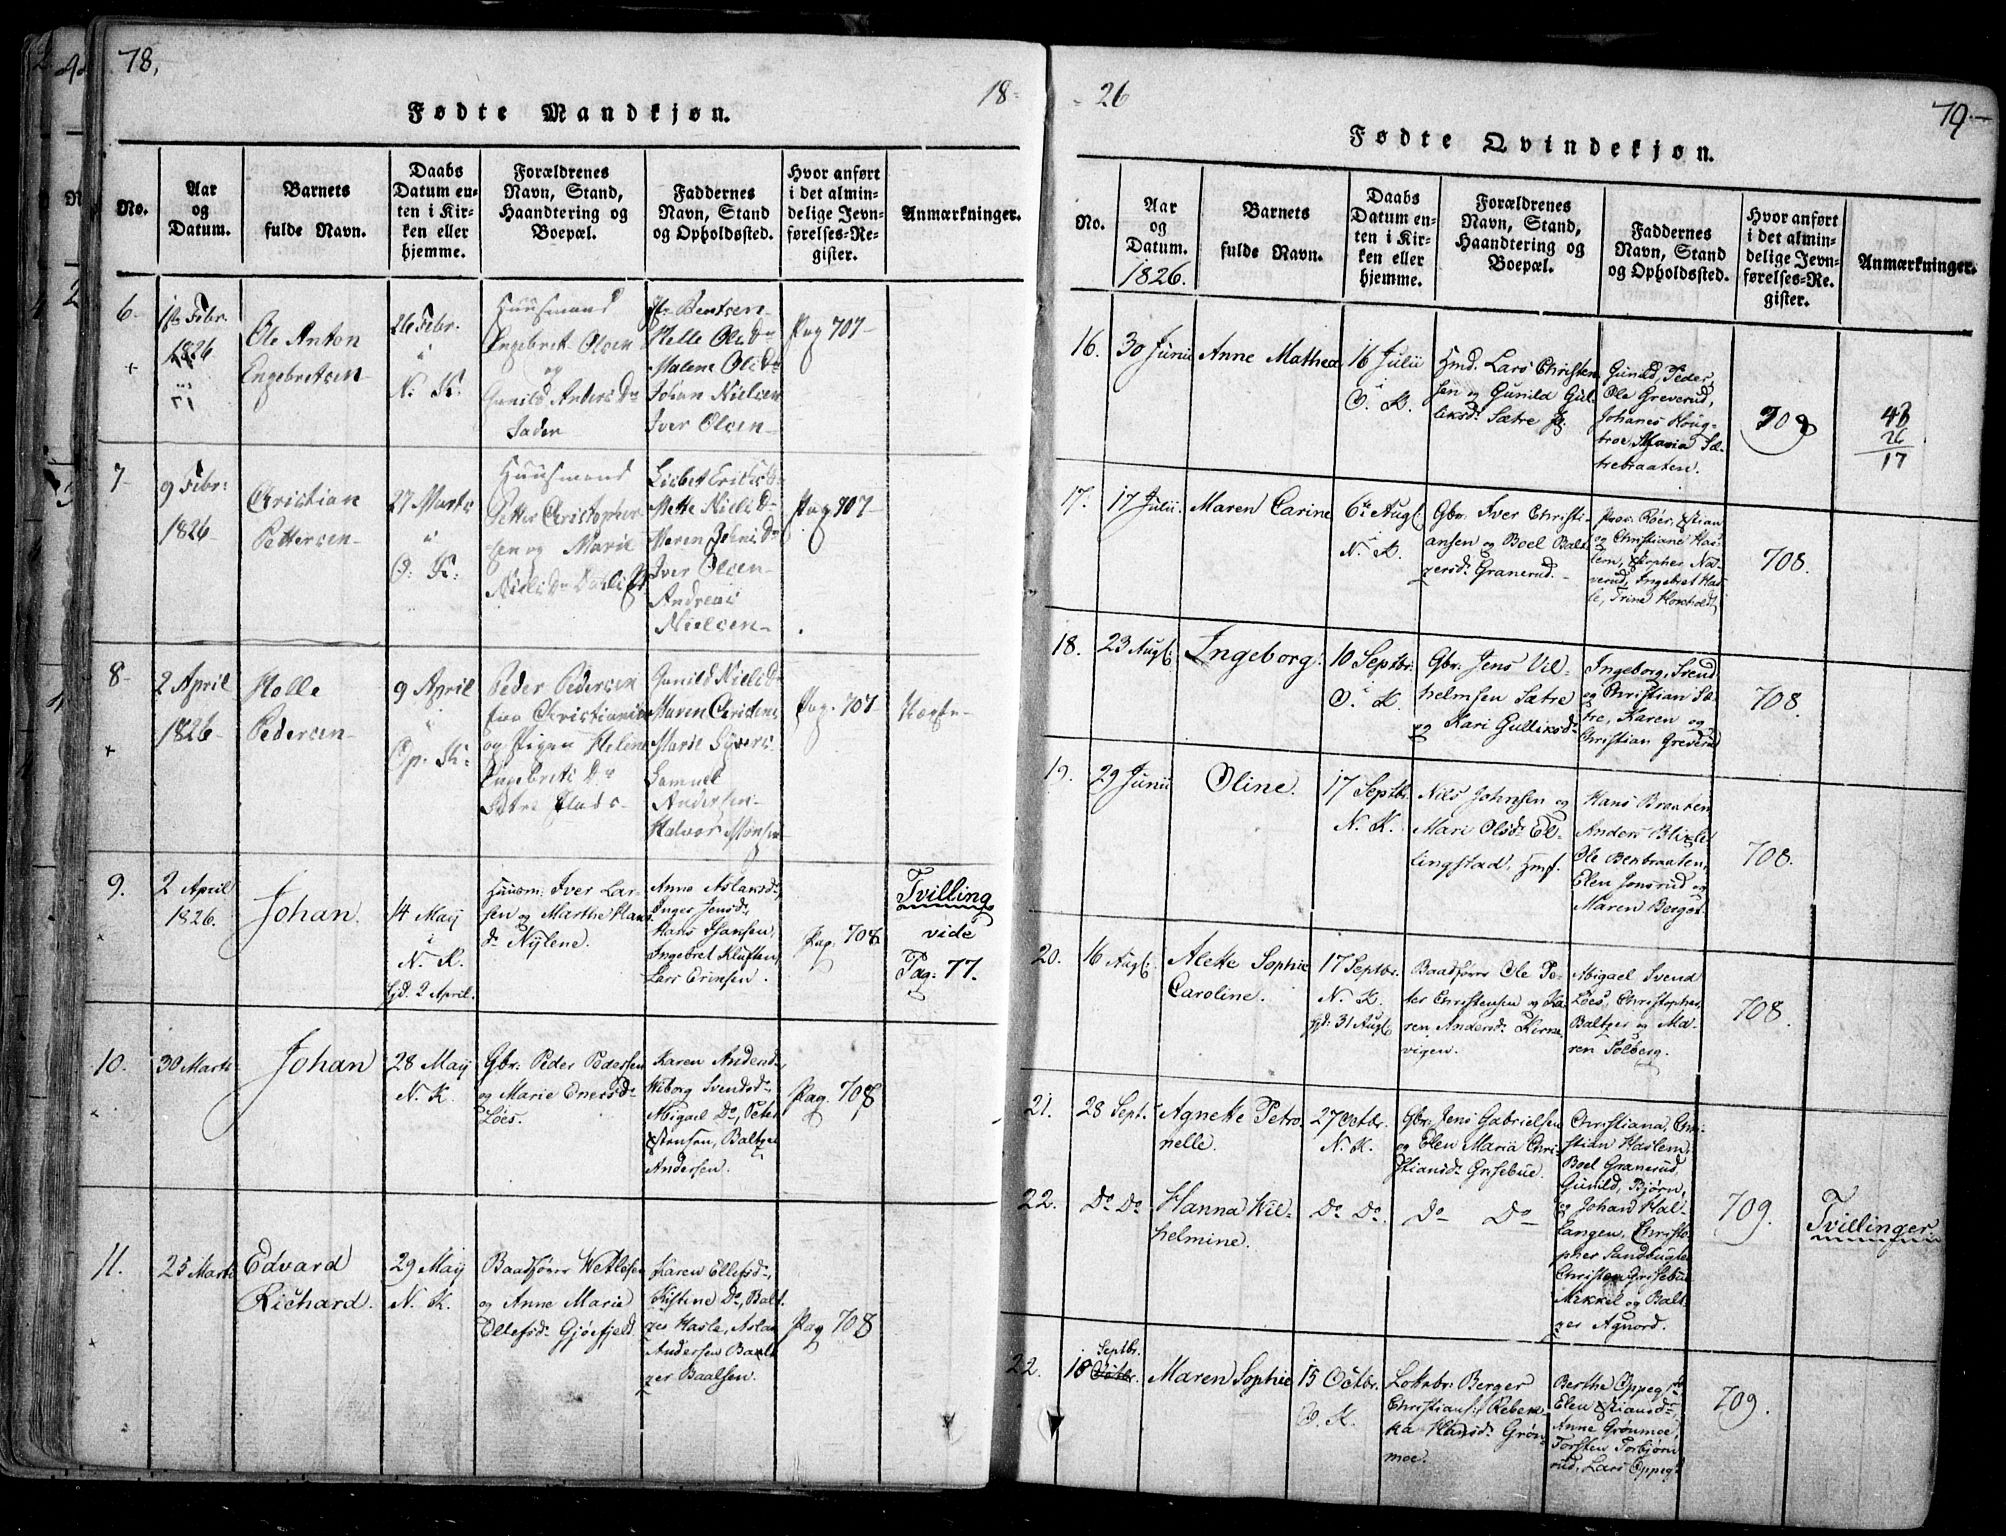 78.
18-
Fødte Mandkjøn.
No.
Aar
og
Datum.
Barnets
fulde Navn.
Daabs
Datum en-
ten i Kir-
ken eller
hjemme.
Forældrenes
Navn, Stand,
Haandtering og
Boepæl.
Faddernes
Navn, Stand
og Opholdssted.
Hvor anført
i det almin-
delige Jevn-
førelses-Re-
gister.
Anmærkninger.
6-
1826
Ole Anton
Engebretsen
26 Febr.
N. K.
Huusmand
Engebret Olsen
og
Gunild Anders D
Bentsen
Helle Olsd
Malene Olsd
Johan Nielsen
Iver Olsen
Pag 707
7
9 Febr:
1826
Christian
Pettersen
27 Marts
O. K:
Huusmand
Petter Christopher
sen og Marie
Lisbet Erichsd
Mette Nielsd
Maren Johnsd
Iver Olsen
Andreas
Nielsen
Pag. 707
8
2 April
1826
Helle
Pedersen
9 April
Op. K:
Peder Pedersen
fra Christiania
og Pigen Helene
Engebrets D
Sætre Plads
Gunild Nielsd
Maren
Marie
Samuel
Andersen
Halvor
Pag. 707
9.
2 April
1826.
Johan.
14 Maij
i
N. K.
hjd. 2 April.
Huusm: Iver Lar-
sen og Marthe Hans
D. Nylene.
Anne Aslaksd.
Inger Jensd.
Hans Hansen,
Ingebret Kluften,
Lars
Pag. 708
Tvilling
vide
Pag: 77.
10.
30 Marts
Johan
28 Maij
N. K.
Gbr: Peder Pedersen
og Marie
Løes.
Karen
Wiborg Svendsd.
Abigael Do, Peter
Baltzer
Andersen.
Pag. 708
11.
25 Marts
Edvard
Richard.
29 Maij
N. K.
Baadsfører Wetlesen
og Anne Marie
Ellefsd. Gjøefjeld
Karen Ellefsd.,
Kistine Do, Balt
zer Hasle, Aslak
Andersen
zer Baalsen.
Pag 708
-26
79-
Fødte Qvindekjøn.
No.
Aar
og
Datum.
1826.
Barnets
fulde Navn.
Daabs
Datum en-
ten i Kir-
ken eller
hjemme.
Forældrenes
Navn, Stand,
Haandtering og
Boepæl.
Faddernes
Navn, Stand
og Opholdssted.
Hvor anført
i det almin-
delige Jevn-
førelses-Re-
gister.
Anmærkninger.
16.
30 Junii
Anne Mathea
16 Julii
i
O. K.
Hmd. Lars Christen
sen og Gunild Gul-
liksd. Sætre
Gunild, Peder,
Ole Greverud,
Johanes Houg-
broe, Maria Sæ-
trebraaten.
708
43
26
17
17.
17 Julii
Maren Carine
6te Augl.
i
N. K.
Gbr. Iver Christi-
ansen og Boel Balt
zersd. Granerud.
og Christiane Has
lem,
verud, Ingebret Has
le, Trine
708.
18.
23 Augl.
Ingeborg.
10 Septbr.
i
O. K.
Gbr. Jens Vil-
helmsen Sætre
og Kari Gulliksd.
Ingeborg, Svend
og Christian Sæ-
tre, Karen og
Christian Greverud
708.
19.
29 Junii
Oline.
17 Septbr.
N. K.
Nils Johnsen og
Mari Olsd. El-
lingstad, Hmf.
Hans Braaten
Anders Blixle
Ole Benbraaten,
Elen Jonsrud og
Maren Berger.
708.
20.
16 Augl.
Alette Sophie
Caroline.
17 Septbr.
N. K.
hjd. 31 Augl.
Baadsfører Ole Pe-
ter Christensen og Ka-
ren Andersd. Kirne-
vigen.
Abigael Svend
Løes, Christopher,
Baltzer og Ma-
ren Solberg.
708.
21.
28 Septr.
Agnette Petro
nelle.
27 Octbr.
N. K.
Gbr. Jens Gabrielsen
og Elen Maria Chri-
stiansd. Grisebue.
Christiana, Chri-
stian Haslem,
Boel Granerud,
Gunild, Bjørn,
og Johan Hal-
langen, Christo-
pher Sandbugten
Christen Grisebue
Mikkel og Balt-
zer Agnord.
22.
Do Do
Hanna Wil-
helmine.
Do Do.
Do Do
709.
Tvillinger
22.
Septbr.
18 Octbr.
Maren Sophie
15 Octbr.
O. K.
Berger
Christians: Rebek
ka Hansd. Grøn
moe.
Berthe Oppeg
Elen
Anne Grønmoe,
Torsten Torbjørn
rud, Lars Oppeg
709.